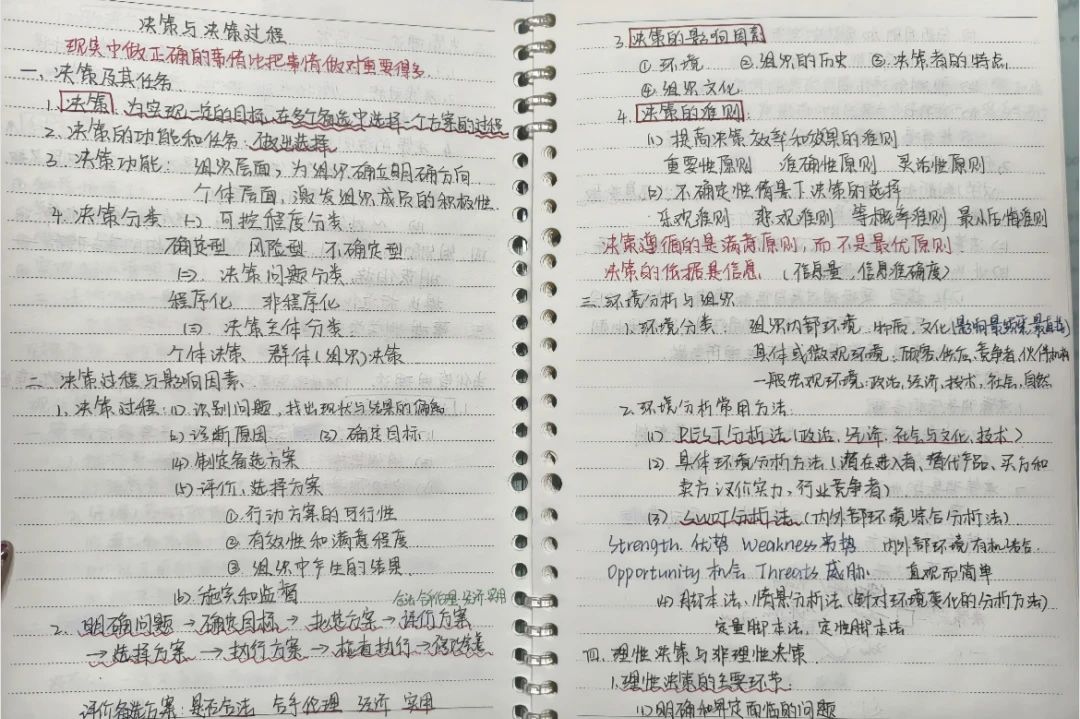 决策与决策过程
现实中做正确的事情比把事情做对重要得多.
一、决策及其任务
1. 决策 为实现一定的目标,在多个备选中选择一个方案的过程
2. 决策的功能和任务:做出选择
3. 决策功能: 组织层面,为组织确立明确方向
个体层面,激发组织成员的积极性.
4. 决策分类 (一) 可控程度分类
确定型 风险型 不确定型
(二) 决策问题分类
程序化 非程序化
(三) 决策主体分类
个体决策 群体(组织)决策
二、决策过程与影响因素
1. 决策过程:(1) 识别问题,找出现状与结果的偏离
(2) 诊断原因 (3) 确定目标
(4) 制定备选方案
(5) 评价,选择方案
① 行动方案的可行性
② 有效性和满意程度
③ 组织中产生的结果
(6) 施实和监督
合法 合伦理 经济 实用
2. 明确问题 → 确定目标 → 拟选方案 → 评价方案
→ 选择方案 → 执行方案 → 检查执行 →
评价备选方案:是否合法 合乎伦理 经济 实用
3. 决策的影响因素
① 环境 ② 组织的历史 ③ 决策者的特点
④ 组织文化
4. 决策的准则
(1) 提高决策效率和效果的准则
重要性原则 准确性原则 灵活性原则
(2) 不确定性情景下决策的选择
乐观准则 悲观准则 等概率准则 最小后悔准则
决策遵循的是满意原则,而不是最优原则
决策的依据是信息 (信息量,信息准确度)
三、环境分析与组织
1. 环境分类: 组织内部环境 物质,文化(影响最频繁最直接)
具体或微观环境:顾客,供应,竞争者,伙伴
一般宏观环境:政治,经济,技术,社会,自然
2. 环境分析常用方法:
(1) PEST分析法(政治,经济,社会与文化,技术)
(2) 具体环境分析方法(潜在进入者、替代产品、买方和
卖方议价实力,行业竞争者)
(3) SWOT分析法(内外部环境综合分析法)
Strength 优势 Weakness 劣势 内外部环境有机结合
Opportunity 机会 Threats 威胁. 直观而简单
(4) 脚本法、情景分析法(针对环境变化的分析方法)
定量脚本法,定性脚本法
四、理性决策与非理性决策
1. 理性决策的主要环节:
(1) 明确和界定面临的问题